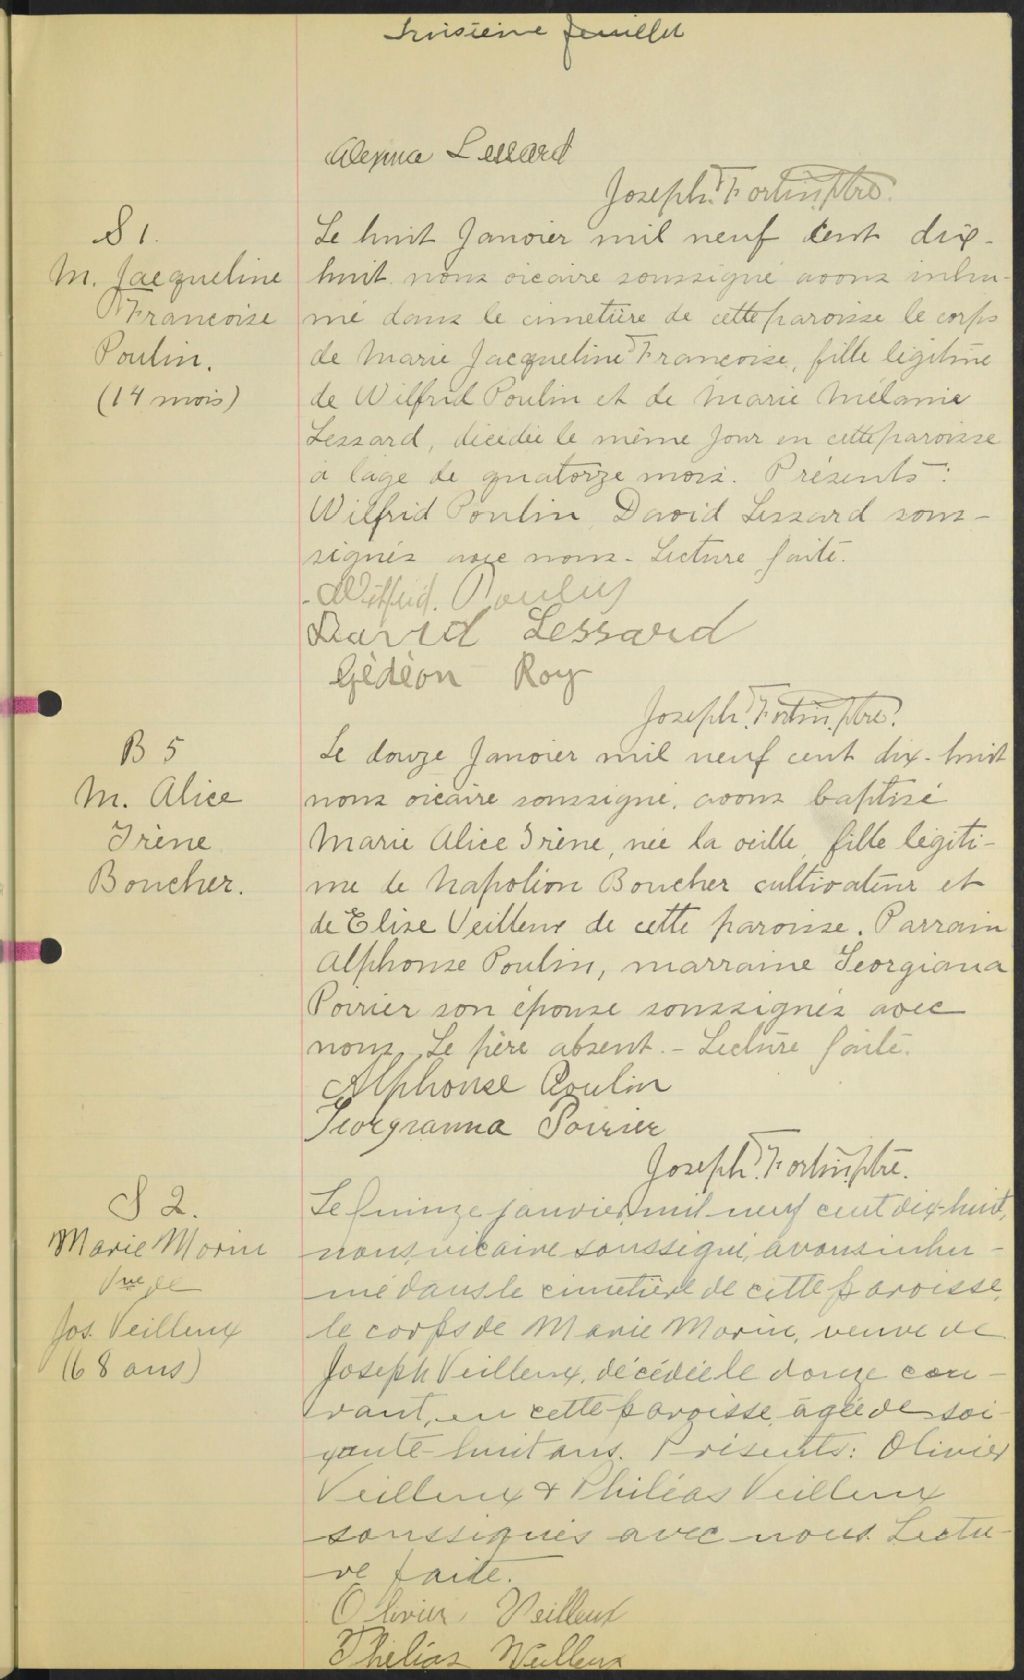 troisième feuillet
Alexina Lessard
Joseph Fortin, ptre.
S 1.
M. Jacqueline
Francoise
Poulin.
(14 mois)
Le huit Janvier mil neuf cent dix-
huit nous vicaire soussigné avons inhu-
mé dans le cimetière de cette paroisse le corps
de Marie Jacqueline Francoise, fille légitime
de Wilfrid Poulin et de Marie Mélanie
Lessard, décédée le même jour en cette paroisse
à l'âge de quatorze mois. Présents:
Wilfrid Poulin, David Lessard sous-
signés avec nous. Lecture faite.
Wilfrid. Poulin
David Lessard
Gédéon Roy
Joseph Fortin, ptre.
B 5
M. Alice
Irène
Boucher.
Le douze Janvier mil neuf cent dix-huit
nous vicaire soussigné, avons baptisé
Marie Alice Irène, née la veille, fille légiti-
me de Napoléon Boucher cultivateur et
de Elise Veilleux de cette paroisse. Parrain
Alphonse Poulin, marraine Georgiana
Poirier son épouse soussignés avec
nous. Le père absent. - Lecture faite.
Alphonse Poulin
Georgianna Poirier
Joseph Fortin, ptre.
S 2.
Marie Morin
Vve de
Jos. Veilleux
(68 ans)
Le quinze janvier, mil neuf cent dix-huit,
nous, vicaire soussigné, avons inhu-
mé dans le cimetière de cette paroisse,
le corps de Marie Morin, veuve de
Joseph Veilleux, décédée le douze cou-
rant, en cette paroisse, âgée de soi-
xante-huit ans. Présents: Olivier
Veilleux & Philéas Veilleux
soussignés avec nous. Lectu-
re faite.
Olivier Veilleux
Philéas Veilleux